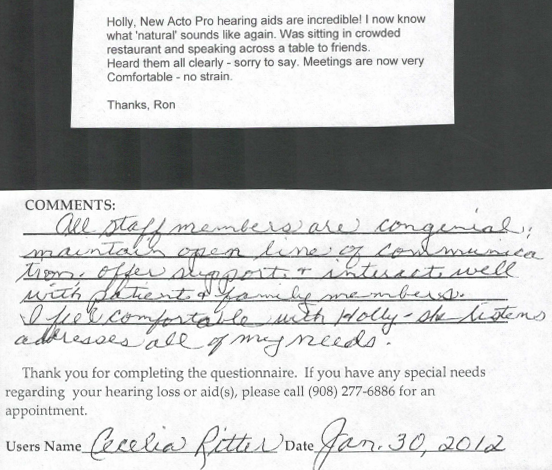 Holly, New Acto Pro hearing aids are incredible! I now know
what 'natural' sounds like again. Was sitting in crowded
restaurant and speaking across a table to friends.
Heard them all clearly - sorry to say. Meetings are now very
Comfortable - no strain.
Thanks, Ron
COMMENTS:
All staff members are congenial,
maintain open line of communica
tion. offer support + interact well
with patient + family members.
I feel comfortable with Holly - she listens
addresses all of my needs.
Thank you for completing the questionnaire. If you have any special needs
regarding your hearing loss or aid(s), please call (908) 277-6886 for an
appointment.
Users Name Cecelia Ritter Date Jan. 30, 2012